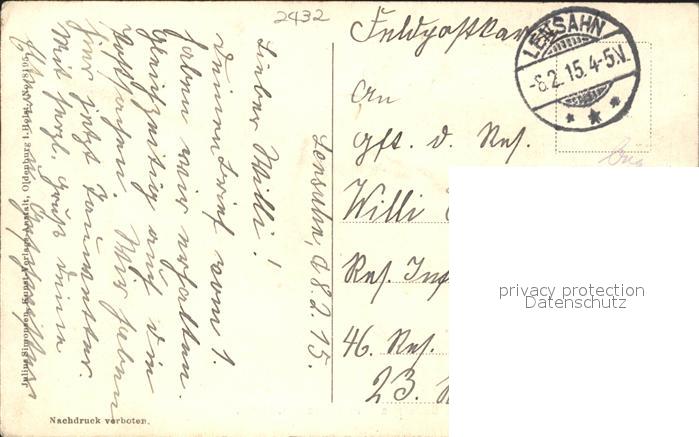 2432
Feldpostkarte
LENSAHN
-8.2.15.4-5.V.
An
Gft. d. Res.
Willi
Res. Inf
46. Res.
23.
Lensahn, d 8.2.15.
Lieber Willi!
Deinen Brief vom 1.
haben wir erhalten.
Gleichzeitig auch die
Wir haben
hier jetzt Tauwetter.
Mit herzl. Gruß deine
Julius Simonsen, Kunst-Verlags-Anstalt, Oldenburg i. Holst. (No.
Nachdruck verboten.
privacy protection
Datenschutz